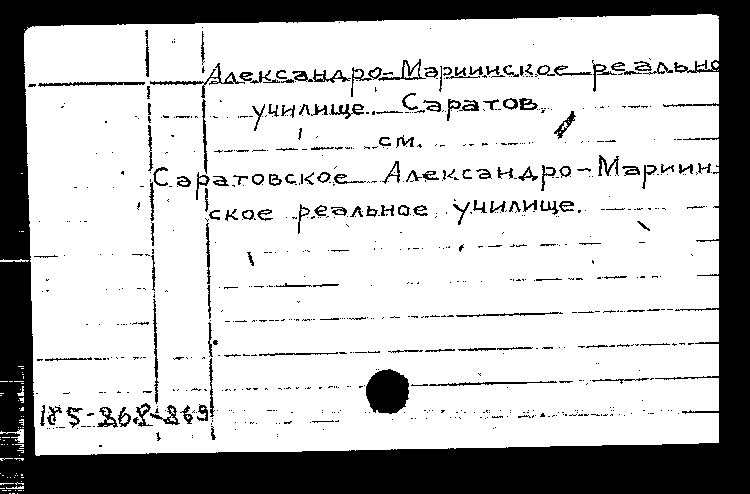 Александро-Мариинское реально
училище. Саратов.
см.
Саратовское Александро-Мариин-
ское реальное училище.
185-868-869